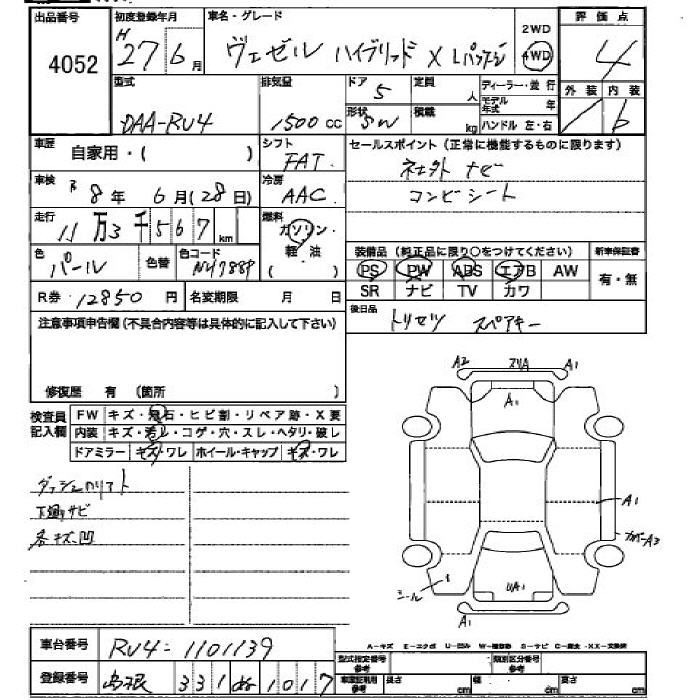 出品番号 4052
初度登録年月 H 27年 6月
車名・グレード ヴェゼル ハイブリッド X Lパッケージ
2WD 4WD
評価点 4
外装 内装 b
型式 DAA-RU4
排気量 1500 cc
ドア 5 形状 SW
定員 人 積載 kg
ディーラー・並行
モデル年式 年
ハンドル 左・右
車歴 自家用・( )
シフト FAT
セールスポイント(正常に機能するものに限ります)
車検 R 8年 6月(28日)
冷房 AAC
ナビ
コンビシート
走行 11万3千567 km
燃料 ガソリン・軽・油 ( )
色 パール 色替 色コード NH788P
装備品(純正品に限り○をつけてください)
新車保証書 有・無
PS PW ABS エアB AW
SR ナビ TV カワ
R券 12850 円 名変期限 月 日
後日品 トリセツ スペアキー
注意事項申告欄(不具合内容等は具体的に記入して下さい)
修復歴 有 (箇所 )
検査員記入欄
FW キズ・飛石・ヒビ割・リペア跡・X要
内装 キズ・汚レ・コゲ・穴・スレ・ヘタリ・破レ
ドアミラー キズ・ワレ ホイール・キャップ キズ・ワレ
下廻サビ
各キズ凹
A2 スリA A1
A1
A1
カバーA3
シール
UA1
A1
A-キズ E-エクボ U-凹み W-補修跡 S-サビ C-腐食 XX-交換済
車台番号 RU4-1101139
登録番号 島根 331 ぬ 1017
型式指定番号 参考
類別区分番号 参考
車庫証明用 参考 長さ cm 幅 cm 高さ cm